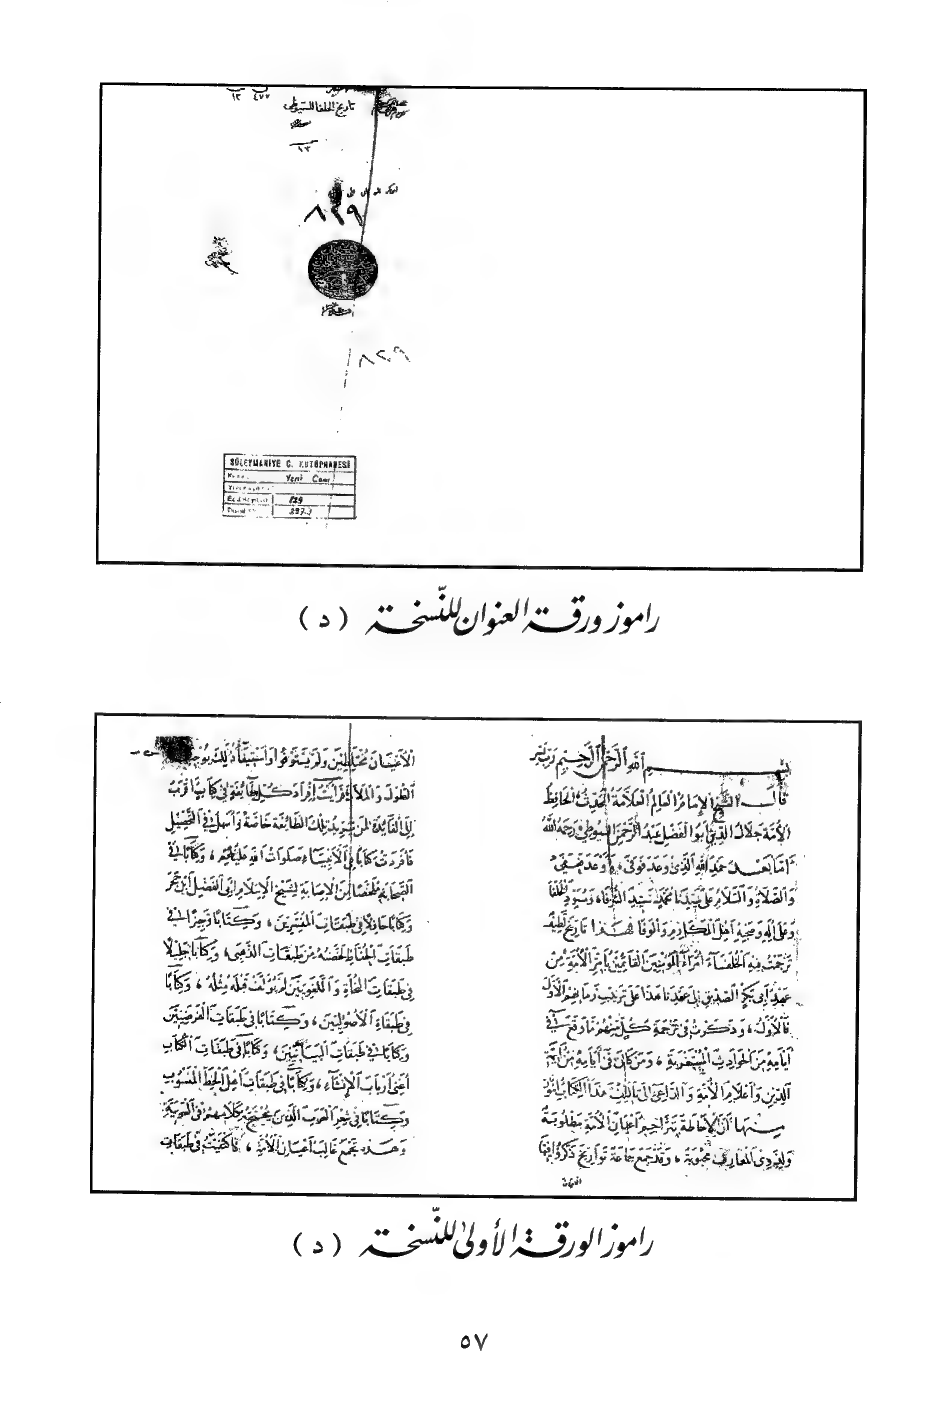 تاريخ الخلفا للسيوطي
١٣
٨٢٩
٨٢٩
SÜLEYMANİYE G. KÜTÜPHANESİ
Yeni Cami
829
راموز ورقة العنوان للنّسخة ( د )
بسم الله الرحمن الرحيم
قال الشيخ الإمام العالم العلامة المحدث الحافظ
الأمة جلال الدين أبو الفضل عبد الرحمن السيوطي رحمه الله
أما بعد حمد الله الذي وعد فوفى، وأوعد فعفى
والصلاة والسلام على سيدنا محمد سيد الشرفا، ومسود الخلفا
وعلى آله وصحبه أهل المكارم والوفا هذا تاريخ لطيف
ترجمت فيه الخلفاء أمراء المومنين القائمين بأمر الأمة من
عهد أبي بكر الصديق إلى عهدنا هذا على ترتيب زمانهم الأول
فالأول، وذكرت في ترجمة كل منهم ما وقع في
أيامه من الحوادث المستغربة، ومن كان في أيامه من أئمة
الدين وأعلام الأمة والداعي إلى تاليف هذا الكتاب أمور
منها أن الإحاطة بتراجم أعيان الأمة مطلوبة
ولذوي المعارف محبوبة، وقد جمع جماعة تواريخ ذكروا فيها
الأعيان مختلطين ولم يستوفوا واستيفاء ذلك يوجب
الطول والملال فرأيت إفراد كل طائفة في كتاب أقرب
إلى الفائدة لمن يريد تلك الطائفة خاصة وأسهل في التحصيل
فأفردت كتابا في الأنبياء صلوات الله عليهم، وكتابا في
الصحابة ملخصا من الإصابة لشيخ الإسلام أبي الفضل ابن حجر
وكتابا حافلا في طبقات المفسرين، وكتابا وجيزا في
طبقات الحفاظ لخصته من طبقات الذهبي، وكتابا جليلا
في طبقات النحاة واللغويين لم يؤلف قبله مثله، وكتابا
في طبقات الأصوليين، وكتابا في طبقات الفرضيين
وكتابا في طبقات البيانيين، وكتابا في طبقات الكتاب
أعني أرباب الإنشاء، وكتابا في طبقات أهل الخط المنسوب
وكتابا في شعر العرب الذين يحتج بكلامهم في العربية
وهذه تجمع غالب أعيان الأمة، فاكتفيت في طبقات
راموز الورقة الأولى للنّسخة ( د )
٥٧